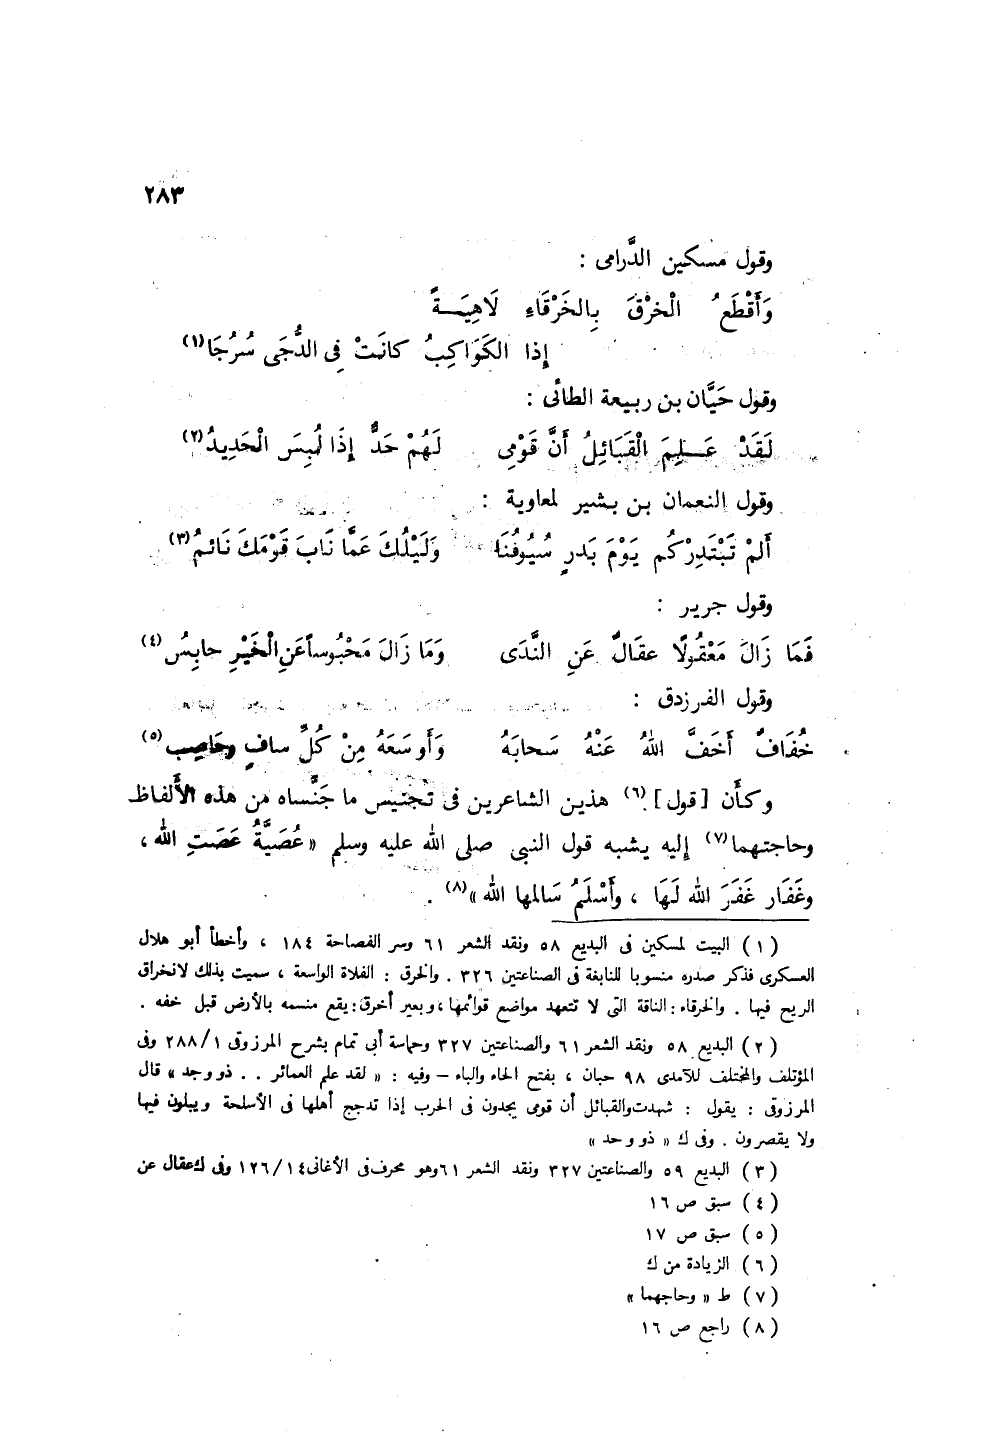 ٢٨٣
وقول مسكين الدَّرامى :
وَأَقْطَعُ الْخرْقَ بِالخَرْقَاءِ لَاهِيَةً
إذا الكَوَاكِبُ كانَتْ فِى الدُّجَى سُرُجَا(١)
وقول حَيَّان بن ربيعة الطائى :
لَقَدْ عَلِمَ الْقَبَائِلُ أَنَّ قَوْمِى لَهُمْ حَدٌّ إِذَا لُبِسَ الْحَدِيدُ(٢)
وقول النعمان بن بشير لمعاوية :
أَلمْ تَبْتَدِرْكُم يَوْمَ بَدرٍ سُيُوفُنَا وَلَيْلُكَ عَمَّا نَابَ قَوْمَكَ نَائمُ(٣)
وقول جرير :
فَمَا زَالَ مَعْقُولًا عقَالٌ عَنِ النَّدَى وَمَا زَالَ مَحْبُوساً عَنِ الْخَيْرِ حابِسُ(٤)
وقول الفرزدق :
خُفَافٌ أَخَفَّ اللهُ عَنْهُ سَحابَهُ وَأَوسَعَهُ مِنْ كُلِّ سافٍ وحَاصِبِ(٥)
وكأن [قول](٦) هذين الشاعرين فى تجنيس ما جَنَّساه من هذه الأَلفاظ
وحاجتهما(٧) إليه يشبه قول النبى صلى الله عليه وسلم « عُصَيَّةُ عَصَتِ الله ،
وغَفَار غَفَرَ الله لَهَا ، وأَسْلَمُ سَالمها الله »(٨) .
(١) البيت لمسكين فى البديع ٥٨ ونقد الشعر ٦١ وسر الفصاحة ١٨٤ ، وأخطأ أبو هلال
العسكرى فذكر صدره منسوبا للنابغة فى الصناعتين ٣٢٦ . والخرق : الفلاة الواسعة ، سميت بذلك لانخراق
الريح فيها . والخرقاء : الناقة التى لا تتعهد مواضع قوائمها ، وبعير أخرق : يقع منسمه بالأرض قبل خفه .
(٢) البديع ٥٨ ونقد الشعر ٦١ والصناعتين ٣٢٧ وحماسة أبى تمام بشرح المرزوقى ٢٨٨/١ وفى
المؤتلف والمختلف للآمدى ٩٨ حبان ، بفتح الحاء والباء – وفيه : « لقد علم العمائر . . ذو وجد » قال
المرزوقى : يقول : شهدت والقبائل أن قومى يجدون فى الحرب إذا تدجج أهلها فى الأسلحة ويبلون فيها
ولا يقصرون . وفى ك « ذو وحد »
(٣) البديع ٥٩ والصناعتين ٣٢٧ ونقد الشعر ٦١ وهو محرف فى الأغانى ١٢٦/١٤ وفى ك عقال عن
(٤) سبق ص ١٦
(٥) سبق ص ١٧
(٦) الزيادة من ك
(٧) ط « وحاجهما »
(٨) راجع ص ١٦